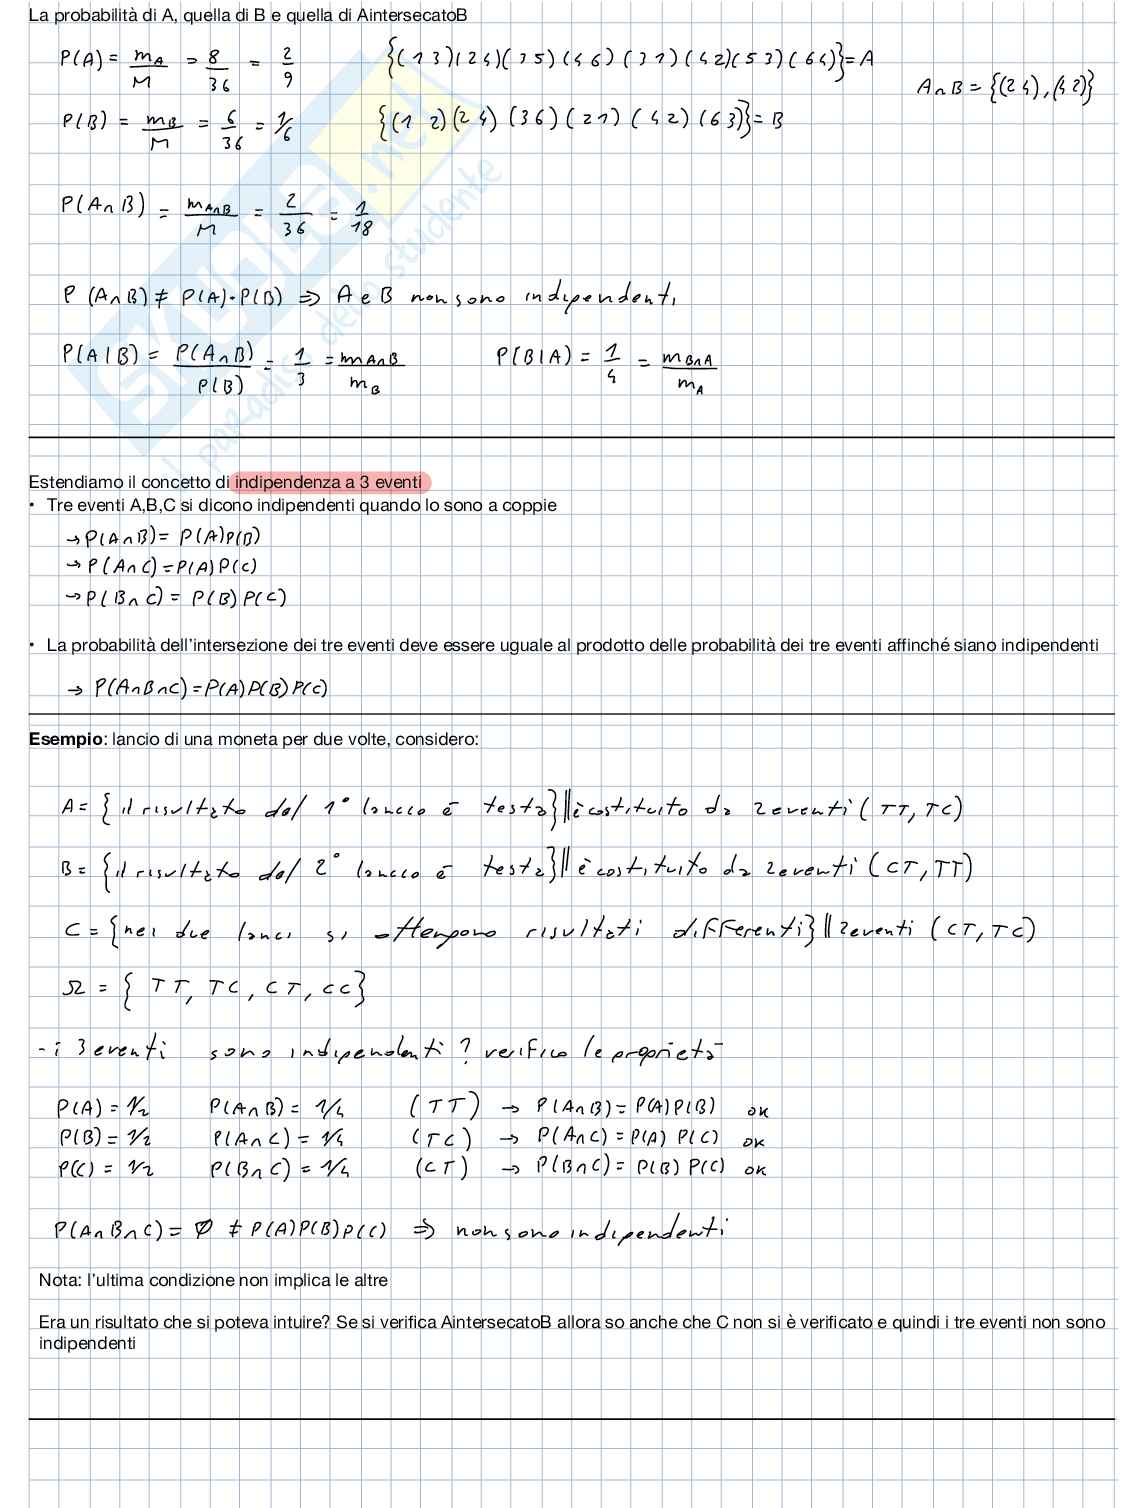 La probabilità di A, quella di B e quella di AintersecatoB
P(A) = m_A/M = 8/36 = 2/9 {(1 3)(2 4)(3 5)(4 6)(3 1)(4 2)(5 3)(6 4)} = A
A∩B = {(2 4),(4 2)}
P(B) = m_B/M = 6/36 = 1/6 {(1 2)(2 4)(3 6)(2 1)(4 2)(6 3)} = B
P(A∩B) = m_A∩B/M = 2/36 = 1/18
P(A∩B) ≠ P(A)·P(B) ⇒ A e B non sono indipendenti
P(A|B) = P(A∩B)/P(B) = 1/3 = m_A∩B/m_B P(B|A) = 1/4 = m_B∩A/m_A
Estendiamo il concetto di indipendenza a 3 eventi
• Tre eventi A,B,C si dicono indipendenti quando lo sono a coppie
→ P(A∩B) = P(A)P(B)
→ P(A∩C) = P(A)P(C)
→ P(B∩C) = P(B)P(C)
• La probabilità dell'intersezione dei tre eventi deve essere uguale al prodotto delle probabilità dei tre eventi affinché siano indipendenti
→ P(A∩B∩C) = P(A)P(B)P(C)
Esempio: lancio di una moneta per due volte, considero:
A = {il risultato del 1° lancio è testa} || è costituito da 2 eventi (TT, TC)
B = {il risultato del 2° lancio è testa} || è costituito da 2 eventi (CT, TT)
C = {nei due lanci si ottengono risultati differenti} || 2 eventi (CT, TC)
Ω = {TT, TC, CT, CC}
- i 3 eventi sono indipendenti? verifico le proprietà
P(A) = 1/2 P(A∩B) = 1/4 (TT) → P(A∩B) = P(A)P(B) OK
P(B) = 1/2 P(A∩C) = 1/4 (TC) → P(A∩C) = P(A)P(C) OK
P(C) = 1/2 P(B∩C) = 1/4 (CT) → P(B∩C) = P(B)P(C) OK
P(A∩B∩C) = ∅ ≠ P(A)P(B)P(C) ⇒ non sono indipendenti
Nota: l'ultima condizione non implica le altre
Era un risultato che si poteva intuire? Se si verifica AintersecatoB allora so anche che C non si è verificato e quindi i tre eventi non sono
indipendenti
SKUOLA.net
il paradiso dello studente